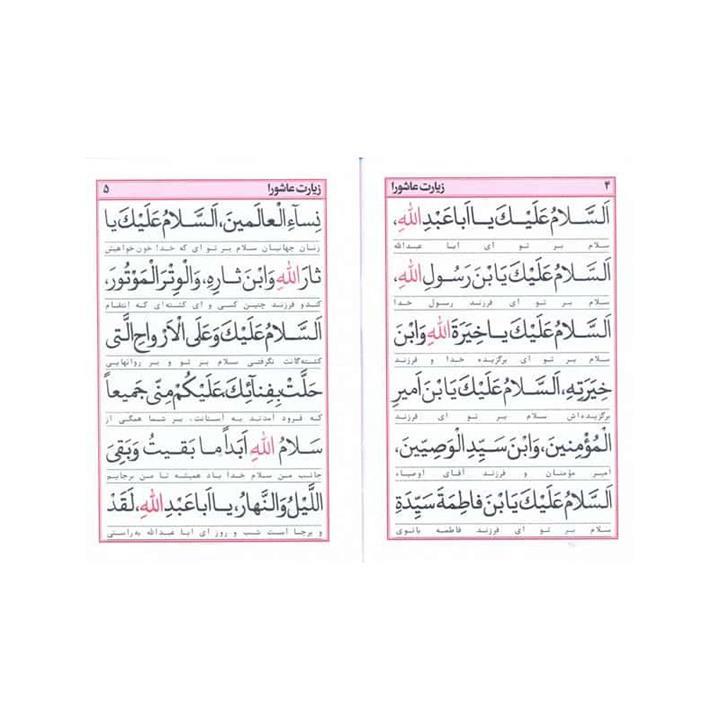 ۴ زیارت عاشورا
اَلسَّلامُ عَلَیْكَ یـا اَبا عَبْدِ اللهِ،
سلام بر تو ای ابا عبدالله
اَلسَّلامُ عَلَیْكَ یَا بْنَ رَسُولِ اللهِ،
سلام بر تو ای فرزند رسول خدا
اَلسَّلامُ عَلَیْكَ یـا خِیَرَةَ اللهِ وَابْنَ
سلام بر تو ای برگزیده خدا و فرزند
خِیَرَتِهِ، اَلسَّلامُ عَلَیْكَ یَا بْنَ اَمیرِ
برگزیده‌اش سلام بر تو ای فرزند
الْمُؤْمِنینَ، وَابْنَ سَیِّدِ الْوَصِیّینَ،
امیر مؤمنان و فرزند آقای اوصیاء
اَلسَّلامُ عَلَیْكَ یَا بْنَ فاطِمَةَ سَیِّدَةِ
سلام بر تو ای فرزند فاطمه بانوی
زیارت عاشورا ۵
نِسآءِ الْعالَمینَ، اَلسَّلامُ عَلَیْكَ یا
زنان جهانیان سلام بر تو ای که خدا خون‌خواهیش
ثارَ اللهِ وَابْنَ ثارِهِ، وَالْوِتْرَ الْمَوْتُورَ،
کند و فرزند چنین کسی و ای کشته‌ای که انتقام
اَلسَّلامُ عَلَیْكَ وَعَلَی الْاَرْواحِ الَّتی
کشته‌گانت نگرفتی سلام بر تو و بر روانهایی
حَلَّتْ بِفِنآئِكَ، عَلَیْكُمْ مِنّی جَمیعاً
که فرود آمدند به آستانت، بر شما همگی از
سَلامُ اللهِ اَبَداً ما بَقیتُ وَبَقِیَ
جانب من سلام خدا باد همیشه تا من برجایم
اللَّیْلُ وَالنَّهارُ، یـا اَبا عَبْدِ اللهِ، لَقَدْ
و برجا است شب و روز ای ابا عبدالله به‌راستی